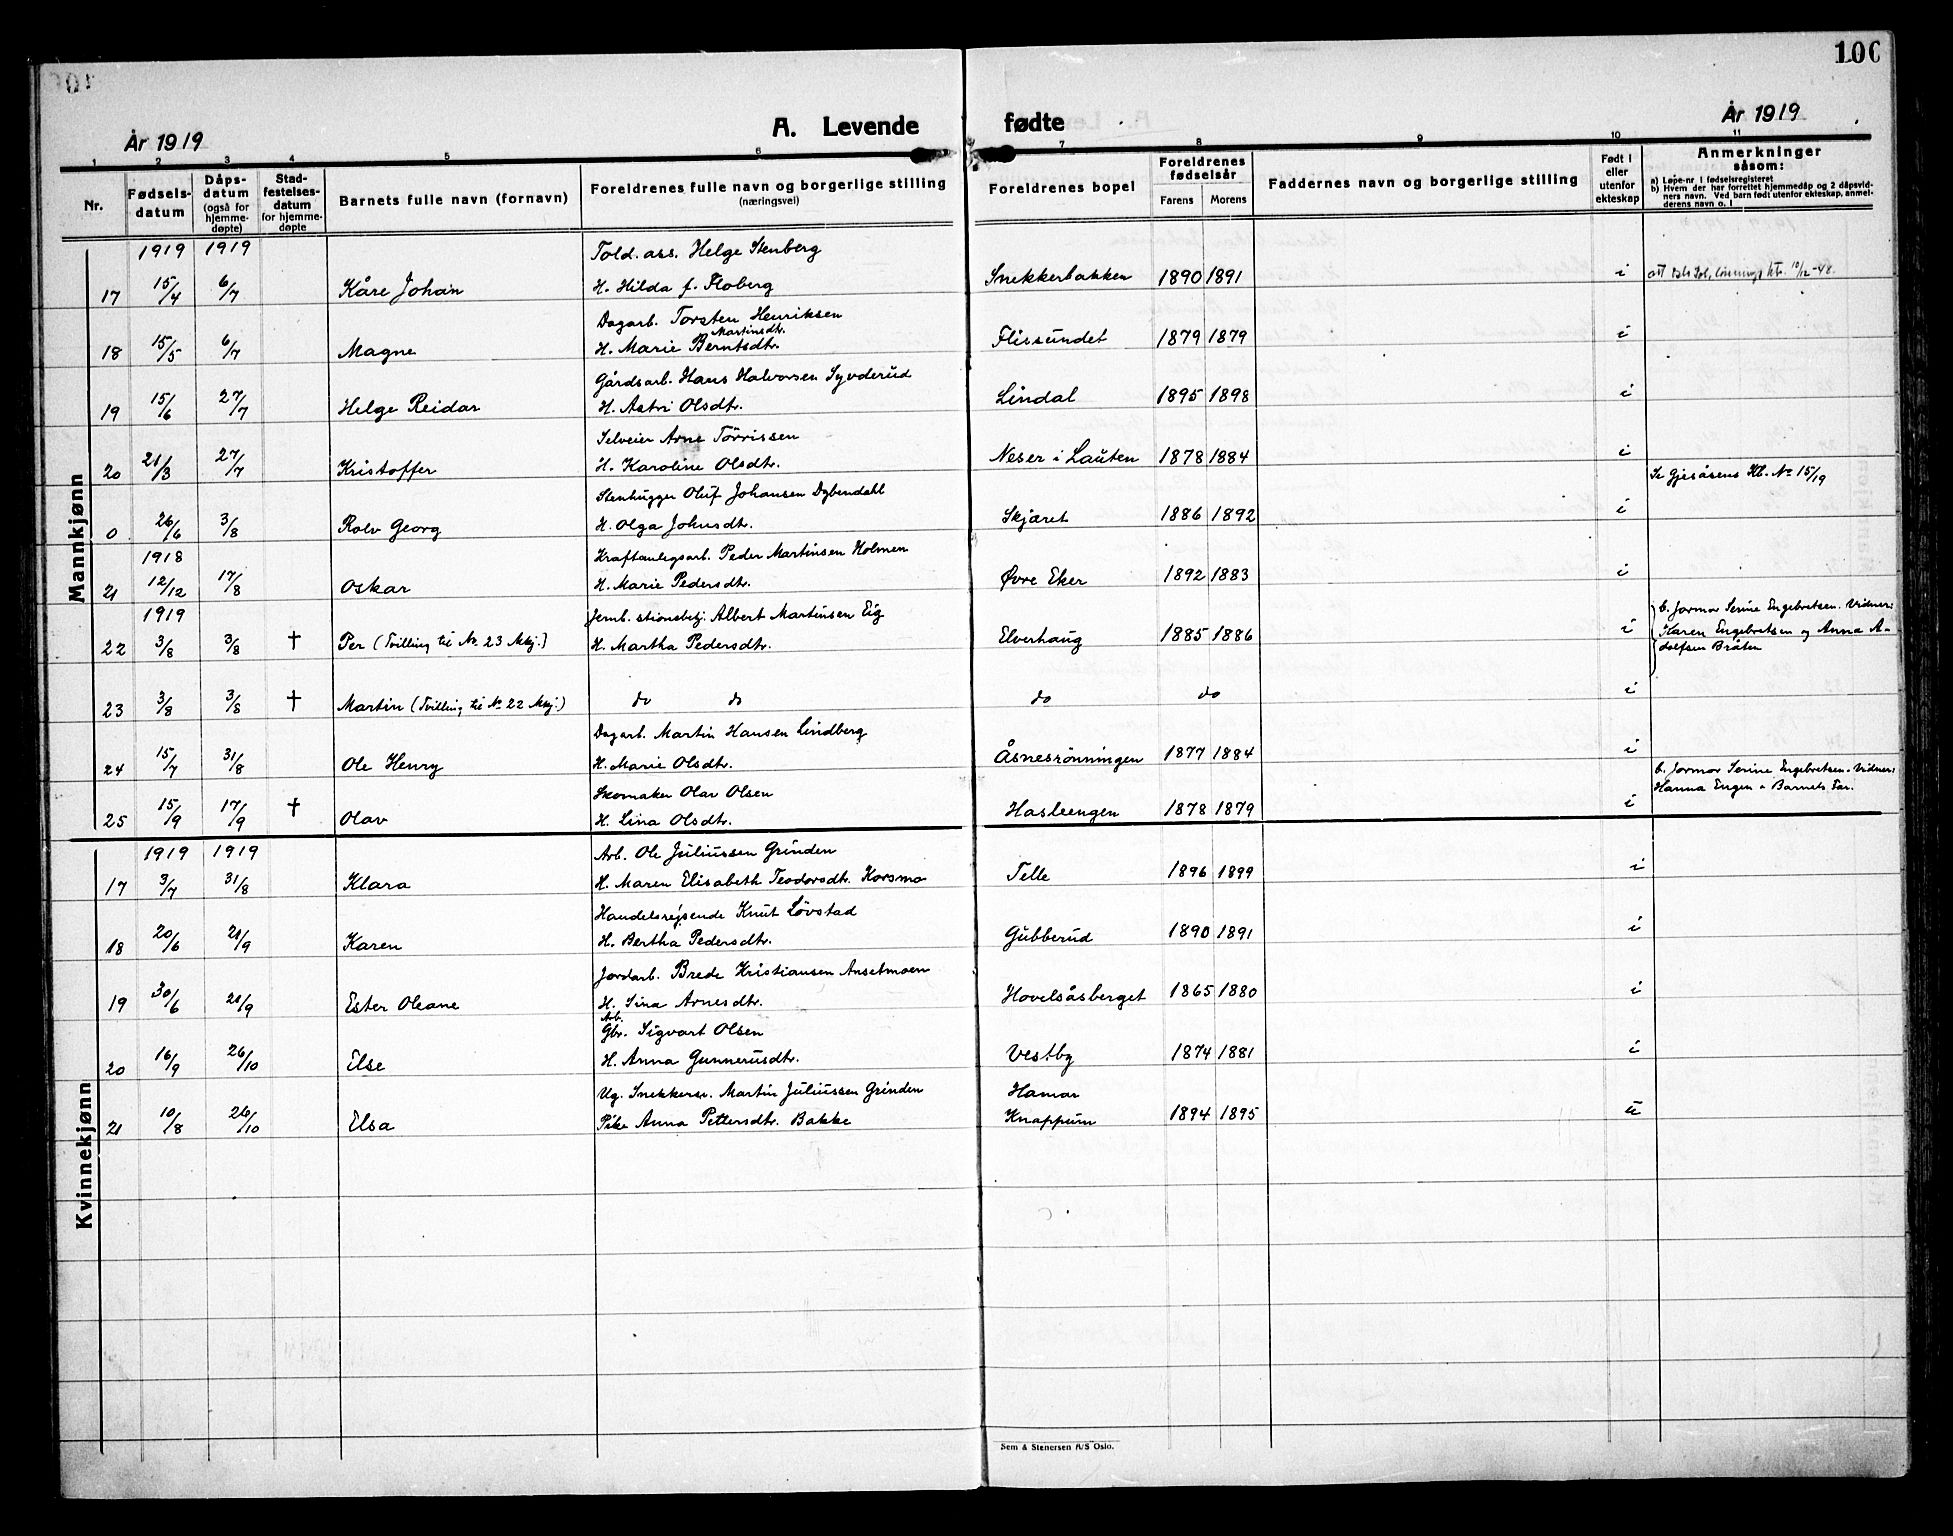 100
År 1919
A. Levende fødte
År 1919
1 2 3 4 5 6 7 8 9 10 11
Nr.
Fødsels-
datum
Dåps-
datum
(også for
hjemme-
døpte)
Stad-
festelses-
datum
for hjemme-
døpte
Barnets fulle navn (fornavn)
Foreldrenes fulle navn og borgerlige stilling
(næringsvei)
Foreldrenes bopel
Foreldrenes
fødselsår
Farens Morens
Faddernes navn og borgerlige stilling
Født i
eller
utenfor
ekteskap
Anmerkninger
såsom:
a) Løpe-nr i fødselsregisteret
b) Hvem der har forrettet hjemmedåp og 2 dåpsvid-
ners navn. Ved barn født utenfor ekteskap, anmel-
derens navn o. l
Mannkjønn
1919 1919 Told. ass. Helge Stenberg
17 15/4 6/7 Kåre Johan H. Hilda f. Floberg Snekkerbakken 1890 1891 i 10/12-48.
Dagarb. Torsten Henriksen
Martinsdtr.
18 15/5 6/7 Magne H. Marie Berntsdtr. Flissundet 1879 1879 i
Gårdsarb. Hans Halvorsen Syvderud
19 15/6 27/7 Helge Reidar H. Astri Olsdtr. Lindal 1895 1898 i
Selveier Arne Tørrissen
20 21/3 27/7 Kristoffer H. Karoline Olsdtr. Neser i Lauten 1878 1884 i
Se Gjesåsens Kb. No 15/19
Stenhugger Oluf Johansen Dybendahl
0 26/6 3/8 Rolv Georg H. Olga Johnsdtr. Skjæret 1886 1892 i
1918 Kraftanlegsarb. Peder Martinsen Holmen
21 12/12 17/8 Oskar H. Marie Pedersdtr. Øvre Eker 1892 1883 i
1919 Jernb. stionsbetj. Albert Martinsen Eig
22 3/8 3/8 † Per (Tvilling til No 23 Mkj.) H. Martha Pedersdtr. Elverhaug 1885 1886 i
b. Jormor Serine Engebretsen. Vidner:
Karen Engebretsen og Anna A-
dolfsen Bråten
23 3/8 3/8 † Martin (Tvilling til No 22 Mkj.) do do do do i
Dagarb. Martin Hansen Lindberg
24 15/7 31/8 Ole Henry H. Marie Olsdtr. Åsnesrønningen 1877 1884 i
Skomaker Olav Olsen
25 15/9 17/9 † Olav H. Lina Olsdtr. Hasleengen 1878 1879 i
b. Jormor Serine Engebretsen. Vidner:
Hanna Engen & Barnets Far.
Kvinnekjønn
1919 1919 Arb. Ole Juliussen Grinden
17 3/7 31/8 Klara H. Maren Elisabeth Teodorsdtr. Korsmo Telle 1896 1899 i
Handelsrejsende Knut Løvstad
18 20/6 21/9 Karen H. Bertha Pedersdtr. Gubberud 1890 1891 i
Jordarb. Brede Kristiansen Anselmoen
19 30/6 21/9 Ester Oleane H. Sina Arnesdtr. Hovelsåsberget 1865 1880 i
Arb.
Gbr. Sigvart Olsen
20 16/9 26/10 Else H. Anna Gunnerusdtr. Vestby 1874 1881 i
Ug. Snekkersv. Martin Juliussen Grinden Hamar
21 10/8 26/10 Elsa Pike Anna Pettersdtr. Bakke Knappum 1894 1895 u
Sem & Stenersen A/S Oslo.